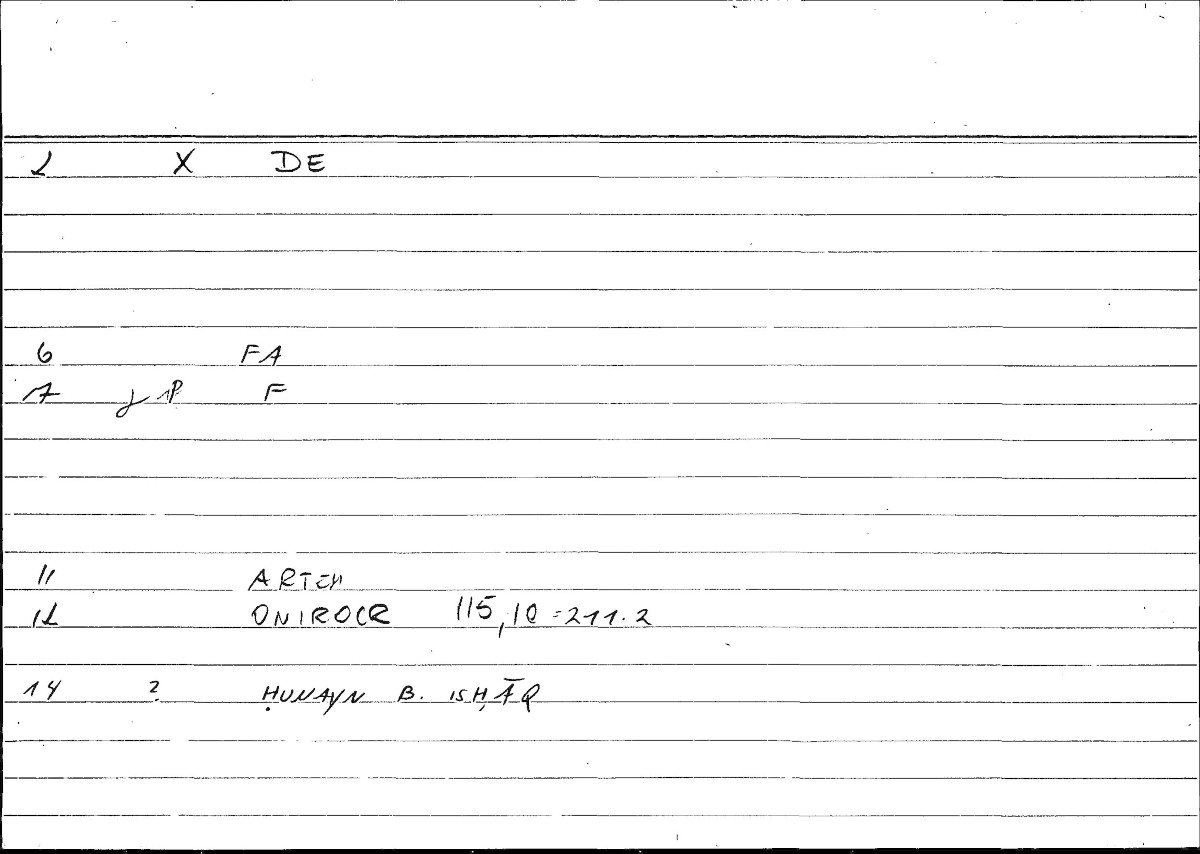 2 X DE
6 FA
7 F
11 ARTEM
12 ONIROCR 115,10=211.2
14 ? ḤUNAYN B. ISḤĀQ